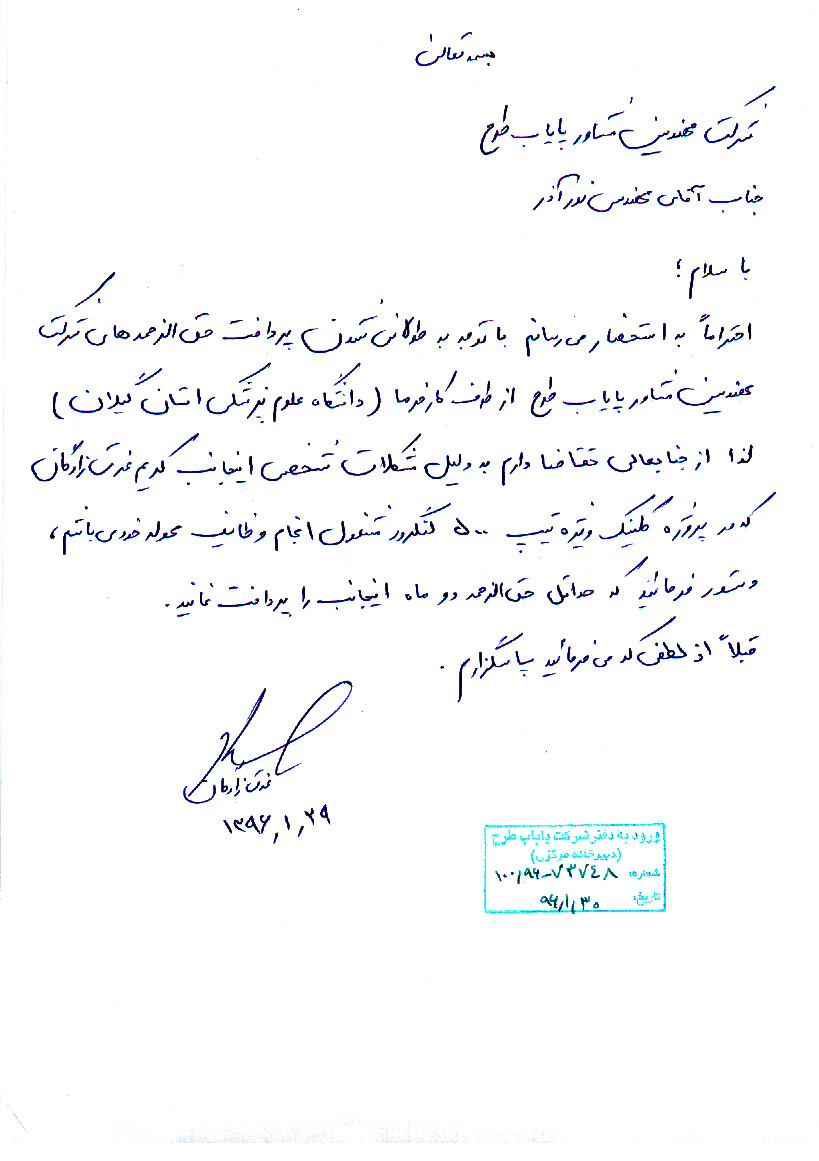 بسمه تعالی
شرکت مهندسین مشاور پایاب طرح
جناب آقای مهندس نورآذر
با سلام؛
احتراماً به استحضار می‌رسانم با توجه به طولانی شدن پرداخت حق الزحمه های شرکت
مهندسین مشاور پایاب طرح از طرف کارفرما (دانشگاه علوم پزشکی استان گیلان)
لذا از جنابعالی تقاضا دارم به دلیل مشکلات شخصی اینجانب کریم غدیری زادگان
که در پروژه کلینیک ویژه تیپ ۵۰۰ لنگرود مشغول انجام وظایف محوله خود می باشم،
دستور فرمائید که حداقل حق الزحمه دو ماه اینجانب را پرداخت نمائید.
قبلاً از لطفی که می فرمائید سپاسگزارم.
۱۳۹۶,۱,۲۹
ورود به دفتر شرکت پایاب طرح
(دبیرخانه مرکزی)
شماره: ۱۰۰,۹۶-۷۳۷۴۸
تاریخ: ۹۶,۱,۳۰